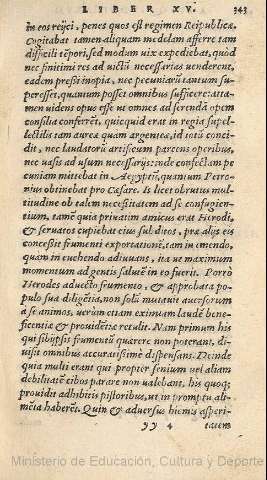 LIBER XV. 343
in eos reijci, penes quos est regimen Reipublicæ.
Cogitabat tamen aliquam medelam afferre tam
difficili tēpori, sed modum uix expediebat, quòd
nec finitimi res ad uictū necessarias uenderent,
eadem pressi inopia, nec pecuniarū tantum su-
peresset, quantum posset omnibus sufficere: atta-
men uidens opus esse ut omnes ad ferendā opem
consilia conferret, quicquid erat in regia supel-
lectilis tam aurea quàm argenteæ, id totū conci-
dit, nec laudatorū artificum parcens operibus,
nec uasis ad usum necessarijs: inde confectam pe
cuniam mittebat in Aegyptū, quanium Petro-
nius obtinebat pro Cæsare. Is licet obrutus mul-
titudine ob talem necessitatem ad se confugien-
tium, tamē quia priuatim amicus erat Herodi,
& seruatos cupiebat eius subditos, præ alijs eis
concessit frumenti exportationē, tam in emendo,
quàm in euehendo adiuuans, ita ut maximum
momentum ad gentis salutē in eo fuerit. Porrò
Herodes aduecto frumento, & approbata po-
pulo sua diligētia, non solū mutauit auersorum
a se animos, uerùm etiam eximiam laudē bene-
ficentiæ & prouidētiæ retulit. Nam primum his
qui sibijpsis frumentū quærere non poterant, di-
uisit omnibus accuratissimè dispensans. Deinde
quia multi erant qui propter senium uel aliam
debilitatē cibos parare non ualebant, his quoq;
prouidit adhibitis pistoribus, ut in promptu ali-
mēta haberēt. Quin & aduersus hiemis asperi-
yy 4 tatem
Ministerio de Educación, Cultura y Deporte